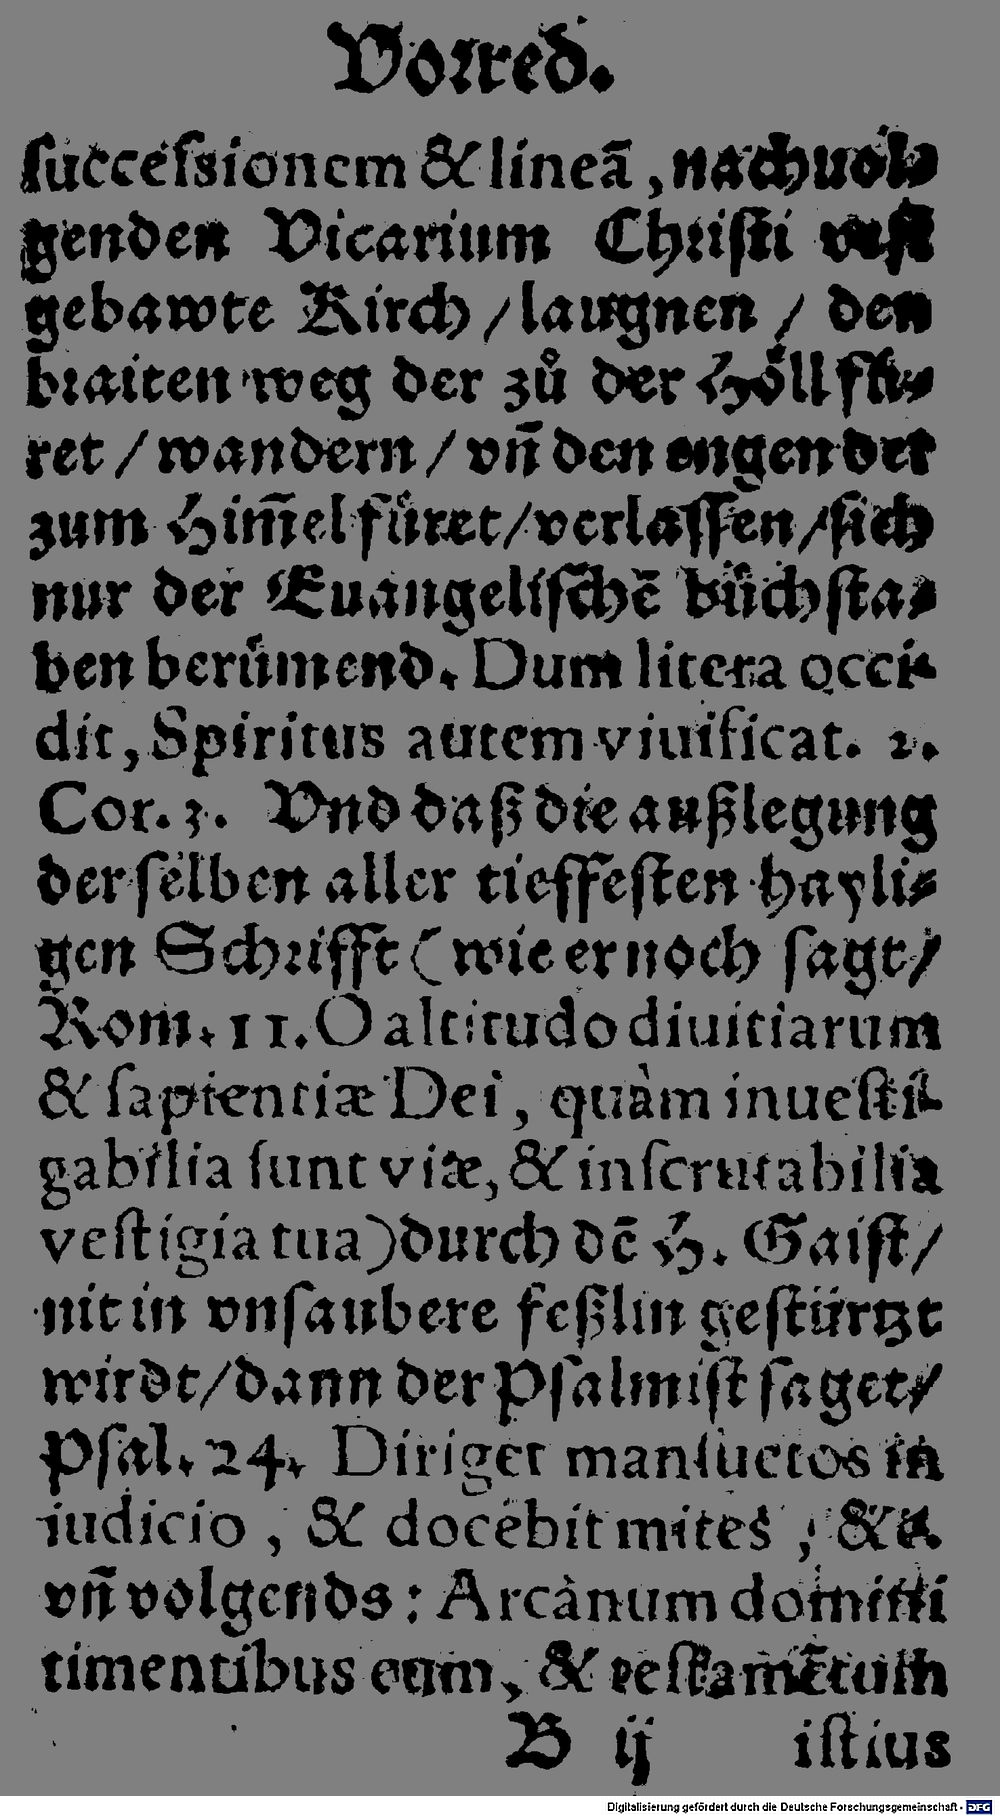 Vorred.
ſucceſsionem & lineã, nachuol⸗
genden Vicarium Chriſti veſt
gebawte Kirch / laugnen / den
braiten weg der zů der Höll fü⸗
ret / wandern / vñ den engen der
zum Him̃el füret / verlaſſen / ſich
nur der Euangeliſchẽ bůchſta⸗
ben berümend. Dum litera occi-
dit, Spiritus autem viuificat. 2.
Cor. 3. Vnd daß die außlegung
der ſelben aller tieffeſten hayli⸗
gen Schrifft ( wie er noch ſagt /
Rom. 11. O altitudo diuitiarum
& ſapientiæ Dei, quàm inueſti-
gabilia ſunt viæ, & inſcrutabilia
veſtigia tua) durch dẽ H. Gaiſt /
nit in vnſaubere feßlin geſtürtzt
wirdt / dann der Pſalmiſt ſaget /
Pſal. 24. Diriget manſuetos in
iudicio, & docebit mites, &c.
vñ volgends: Arcanum domini
timentibus eum, & teſtamẽtum
B ij istius
Digitalisierung gefördert durch die Deutsche Forschungsgemeinschaft - DFG